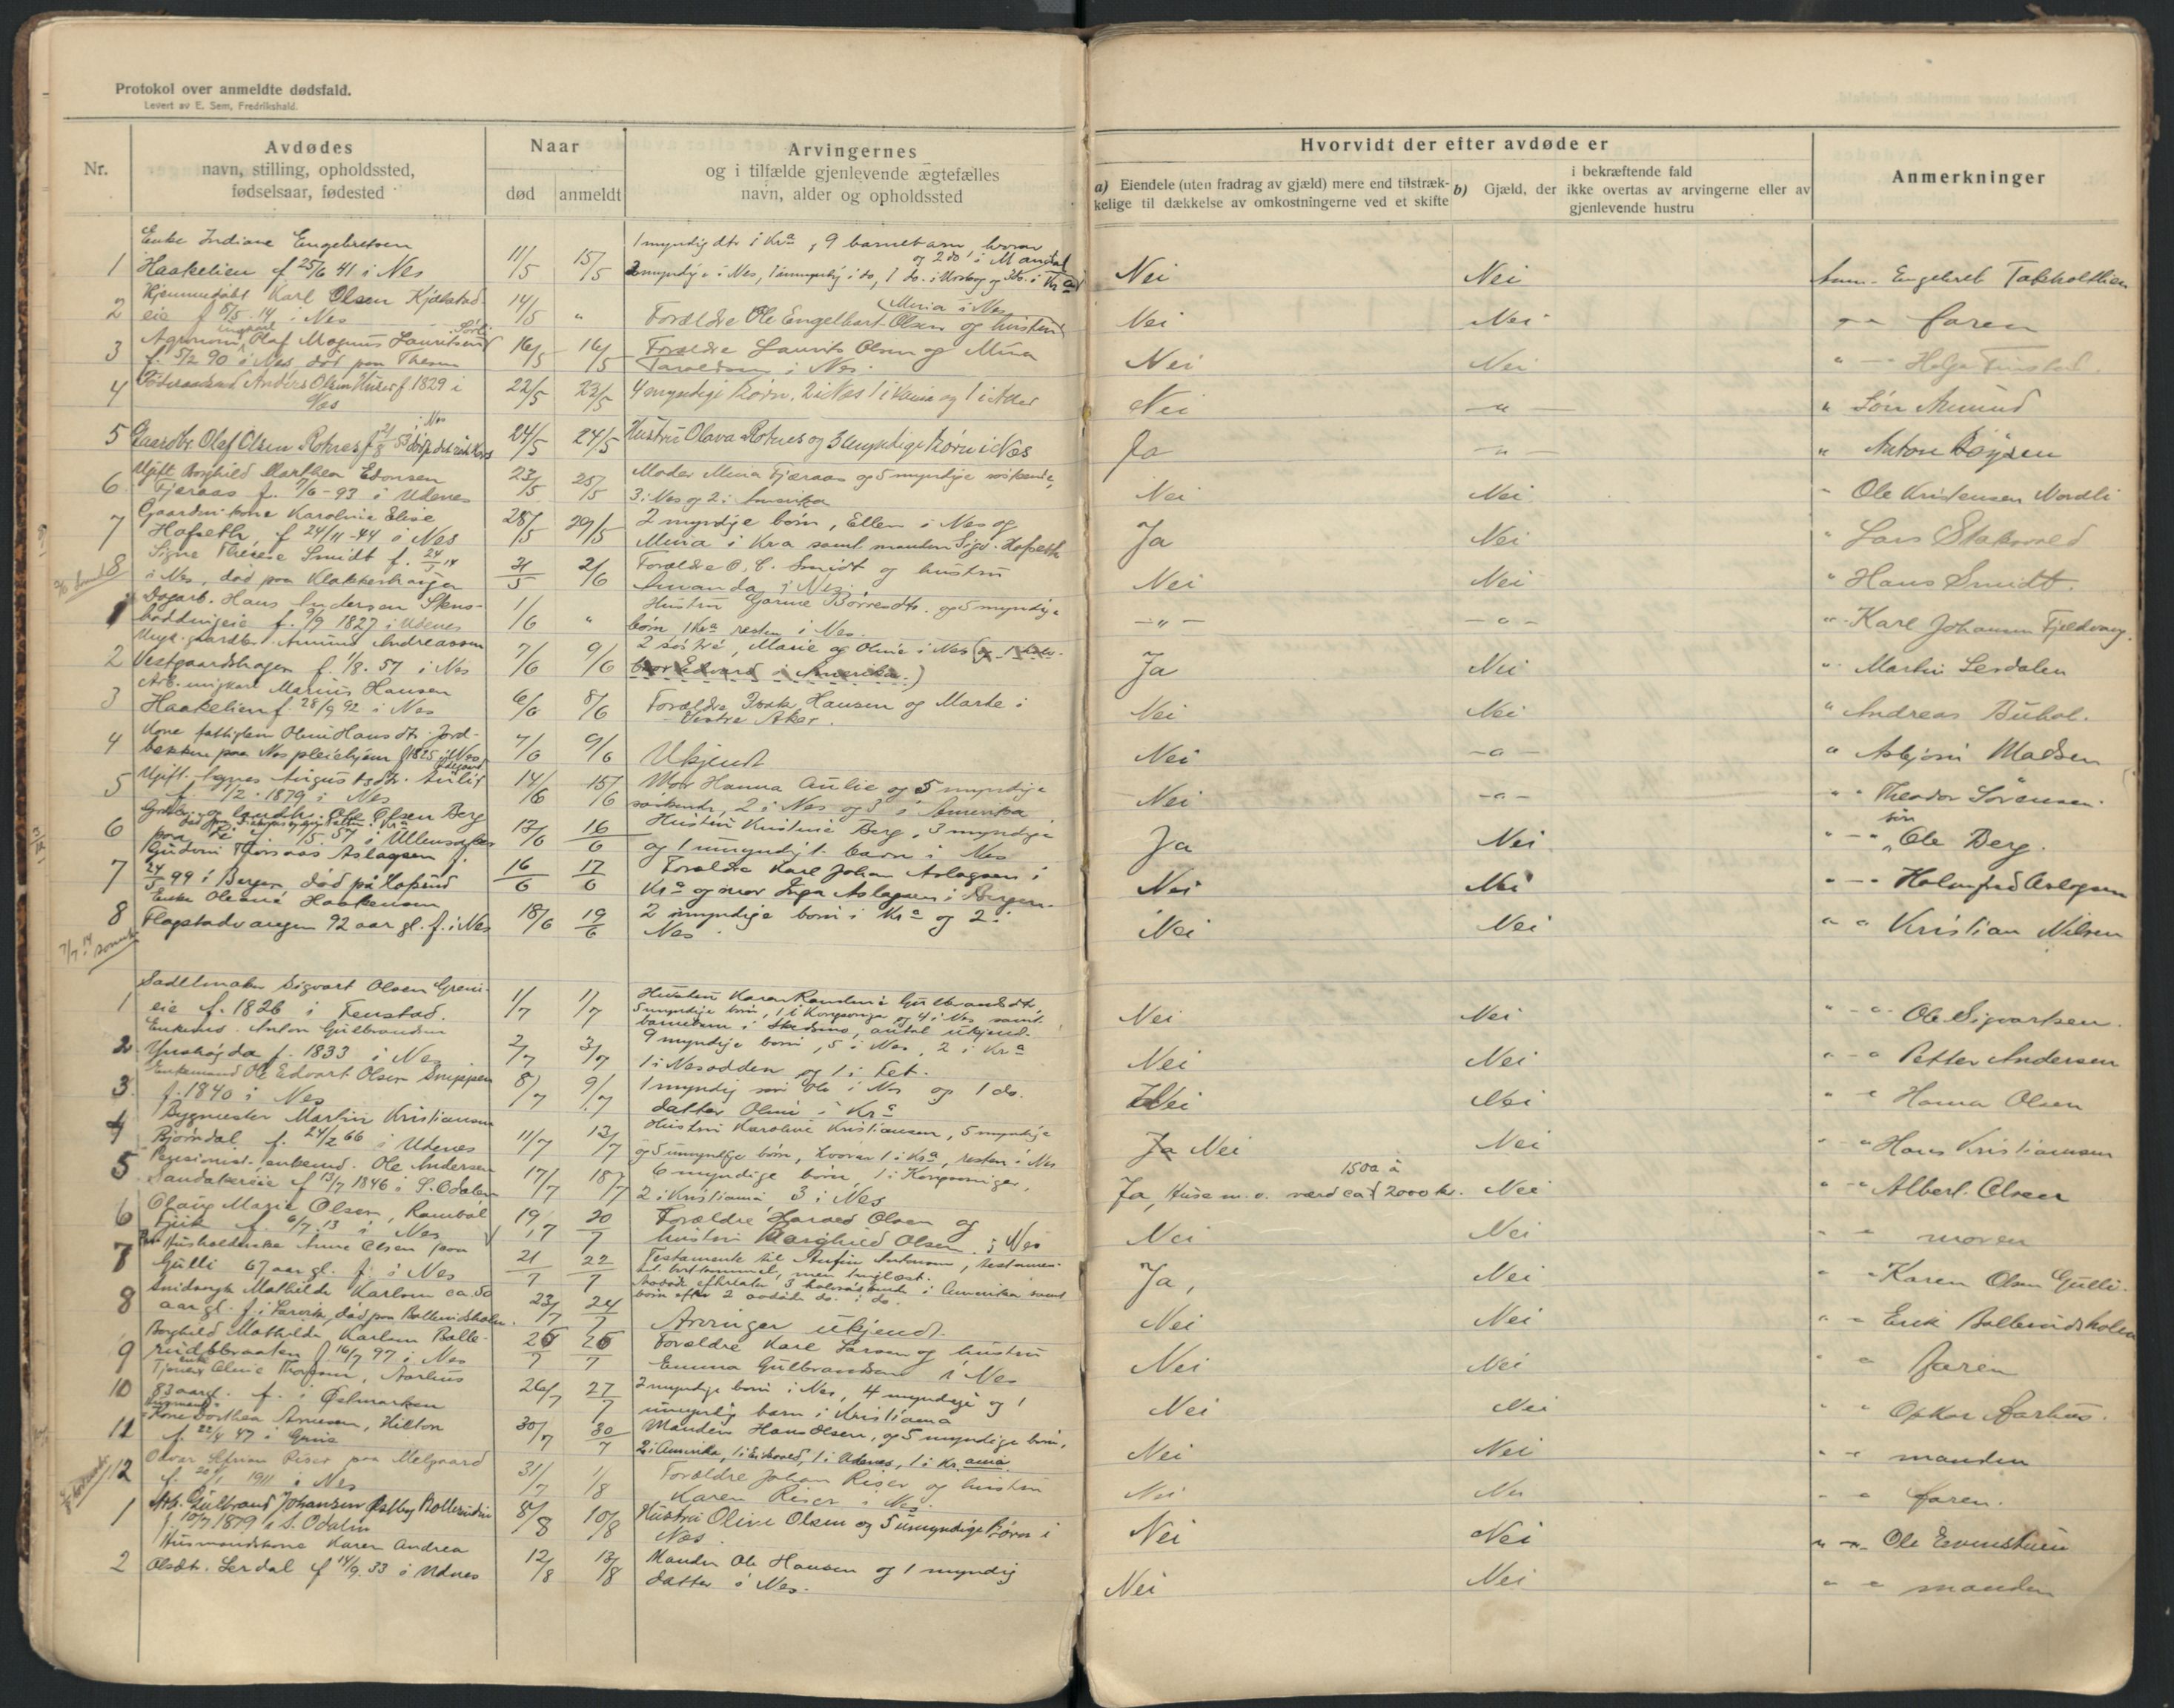 Protokol over anmeldte dødsfald.
Levert av E. Sem, Fredrikshald.
Nr.
Avdødes
navn, stilling, opholdssted,
fødselsaar, fødested
Naar
død
anmeldt
Arvingernes
og i tilfælde gjenlevende ægtefælles
navn, alder og opholdssted
Hvorvidt der efter avdøde er
a) Eiendele (uten fradrag av gjæld) mere end tilstræk-
kelige til dækkelse av omkostningerne ved et skifte
b) Gjæld, der
i bekræftende fald
ikke overtas av arvingerne eller av
gjenlevende hustru
Anmerkninger
Enke Indiane Engebretsen
1 Haakelien f 25/6 41 i Nes 11/5 15/5
1 myndig dtr i Kra, 9 barnebarn, hvorav
og 2 do i Mandal
myndige i Nes, 1 umyndig i do, 1 do. i
Nei Nei Anm. Engebret
Hjemmedøbt Karl Olsen Kjølstad
2 eie f 5/5 14 i Nes 14/5 "
Forældre Ole Engelhart Olsen og hustru
Maria i Nes
Nei Nei " " faren
Agronom Olaf Magnus Lauritsen
3 f 5/2 90 i Nes, død paa 16/5 16/5
Forældre Laurits Olsen og Mina
i Nes.
Nei Nei " " Helge
4 Anders Olsen f 1829 i
Nes 22/5 23/5
4 myndige børn. 2 i Nes 1 i og 1 i
Nei - " - " Søn Amund
5 Gaardbr. Olaf Olsen Rotnes f 53 24/5 24/5
Hustru Olava Rotnes og 3 umyndige børn i Nes
Ja - " - " Anton Bøysen
Ugift Borghild Marthea Edvnsen
6 Fjeraas f. 7/6 - 93 i Udenes 23/5 25/5
Moder Mina Fjæraas og 5 myndige søskende,
3 i Nes og 2 i Amerika
Nei Nei " Ole Kristensen Nordli
Gaardmkone Karoline Elise
7 Hofseth, f 24/11 -44 i Nes 28/5 29/5
2 myndige børn, Ellen i Nes og
Mina i Kra samt manden Sigv. Hofseth
Ja Nei " Lars
Signe Therese Smidt f. 24/5 14
8 i Nes, død paa Klokkerhaugen 31/5 2/6
Forældre O. C. Smidt og hustru
Amanda i Nes
Nei Nei " Hans Smidt.
Dagarb. Hans Andersen Stens-
1 f. 9/9 1827 i Udenes 1/6 "
Hustru Gorine Børresdtr. og 5 myndige
børn, 1 Kra resten i Nes.
- " - - " - " Karl Johansen Fjeldvang.
Ungk. gaardbr. Amund Andreassen
2 Vestgaardshagen f. 1/8. 57 i Nes 7/6 9/6
2 søstre, Marie og Oline i Nes
bror Edvard i Amerika.)
Ja Nei " Martin Lerdalen
Arb. ungkarl Marius Hansen
3 Haakelien f. 28/9 92 i Nes 6/6 8/6
Forældre Hansen og Marte i
Vestre Aker.
Nei Nei " Andreas Buhol.
Kone fattiglem Oline Hansdtr. Jord-
4 bakken paa Nes pleiehjem f 1825 i Nes 7/6 9/6
Ukjendt
Nei - " - " Asbjørn Madsen
5 Ugift Agnes Augustsdtr. Aulie
f. 1/2 . 1879 i Nes 14/6 15/6
Mor Hanna Aulie og 5 myndige
søskende, 2 i Nes og 3 i Amerika
Nei - " - " " Theodor Sørensen.
6 landh. Ole Olsen Berg
57 i Ullensaker 13/6 16/6
Hustru Kristine Berg, 3 myndige
og 1 umyndigt barn i Nes
Ja Nei " " søn Ole Berg.
Gudrun Aslagsen f.
7 24/5 99 i Bergen, død på Hofsund 16/6 17/6
Forældre Karl Johan Aslagsen i
Kra og mor Inga Aslagsen i Bergen.
Nei Nei " " Holmfrid Aslagsen
Enke Oleane Haakensen
8 Flagstadvangen 92 aar gl. f. i Nes 18/6 19/6
2 myndige børn i Kra og 2 i
Nes.
Nei Nei " " Kristian Nilsen
Sadelmaker Sigvart Olsen Greni-
1 eie f. 1826 i Fenstad. 1/7 1/7
Hustru Karen Gulbrandsdtr,
5 myndige børn, 1 i Kongsvinger og 4 i Nes samt
barnebarn i Skedsmo, antal ukjend.
Nei Nei " " Ole Sigvartsen.
Enkemd. Anton Gulbrandsen
2 f. 1833 i Nes 2/7 3/7
9 myndige børn, 5 i Nes, 2 i Kra
1 i Nesodden og 1 i Fet.
Nei Nei " " Petter Andersen
Enkemand Ole Edvart Olsen Snippen
3 f. 1840 i Nes 8/7 9/7
1 myndig søn Ole i Nes og 1 do.
datter Oline i Kra
Nei Nei " " Hanna Olsen
Bygmester Martin Kristiansen
4 Bjørndal f. 24/2 66 i Udenes 11/7 13/7
Hustru Karoline Kristiansen, 5 myndige
og 5 umyndige børn, hvorav 1 i Kra, resten i Nes
Ja Nei Nei " " Hans Kristiansen
Pensionist enkemd. Ole Andersen
5 Sandakereie f 13/7 1846 i S. Odalen 17/7 18/7
6 myndige børn, 1 i Kongsvinger,
2 i Kristiania 3 i Nes
1500 à
Ja, Huse m. v. værd ca 2000 kr. Nei " " Albert Olsen
Olaug Marie Olsen, Rambøl
6 f. 6/7 13 i Nes 19/7 20/7
Forældre Harald Olsen og
hustru Borghild Olsen. i Nes
Nei Nei " " moren
Husholderske Anne Olsen paa
7 Gulli 67 aar gl. f. i Nes 21/7 22/7
Testamente til Anfin Antonsen, testamen-
men tinglæst.
3 halvsøskende i Amerika samt
børn efter 2 avdøde do. i do.
Ja, Nei " " Karen Olsen Gulli.
Mathilde Karlsen ca. 50
8 aar gl. f. i Larvik, død paa Bollerudsholen. 23/7 24/7
Arvinger ukjendt.
Nei Nei " " Erik Bollerudsholen
Borghild Mathilde Karlsen Balle-
9 rudsbraaten f. 16/7 97 i Nes 25/7 26/7
Forældre Karl Larsen og hustru
Emma Gulbrandsen i Nes
Nei Nei " " faren
enke Oline Thorsen, Aarhus
10 83 aar gl. f. i Østmarken 26/7 27/7
2 myndige børn i Nes, 4 myndige og 1
umyndig barn i Kristiania
Nei Nei " " Oskar Aarhus.
Kone Dorthea Arnesen, Hilton
11 f. 22/4 47 i Grue 30/7 30/7
Manden Hans Olsen, og 5 myndige børn,
2 i Amerika, 1 i Eidsvold, 1 i Udenes, 1 i Kr.ania
Nei Nei " " manden
Odvar Riser paa Melgaard
12 f. 20/1 1911 i Nes 31/7 1/8
Forældre Johan Riser og hustru
Karen Riser i Nes.
Nei Nei " " faren.
Arb. Gulbrand Johansen Østby Bollerud
1 f 10/7 1879 i S. Odalen 8/8 10/8
Hustru Olive Olsen og 5 umyndige børn i
Nes.
Nei Nei " " Ole
Husmandskone Karen Andrea
2 Olsdtr. Lerdal f 14/9. 33 i Udnes 12/8 13/8
Manden Ole Hansen og 1 myndig
datter i Nes.
Nei Nei " " manden